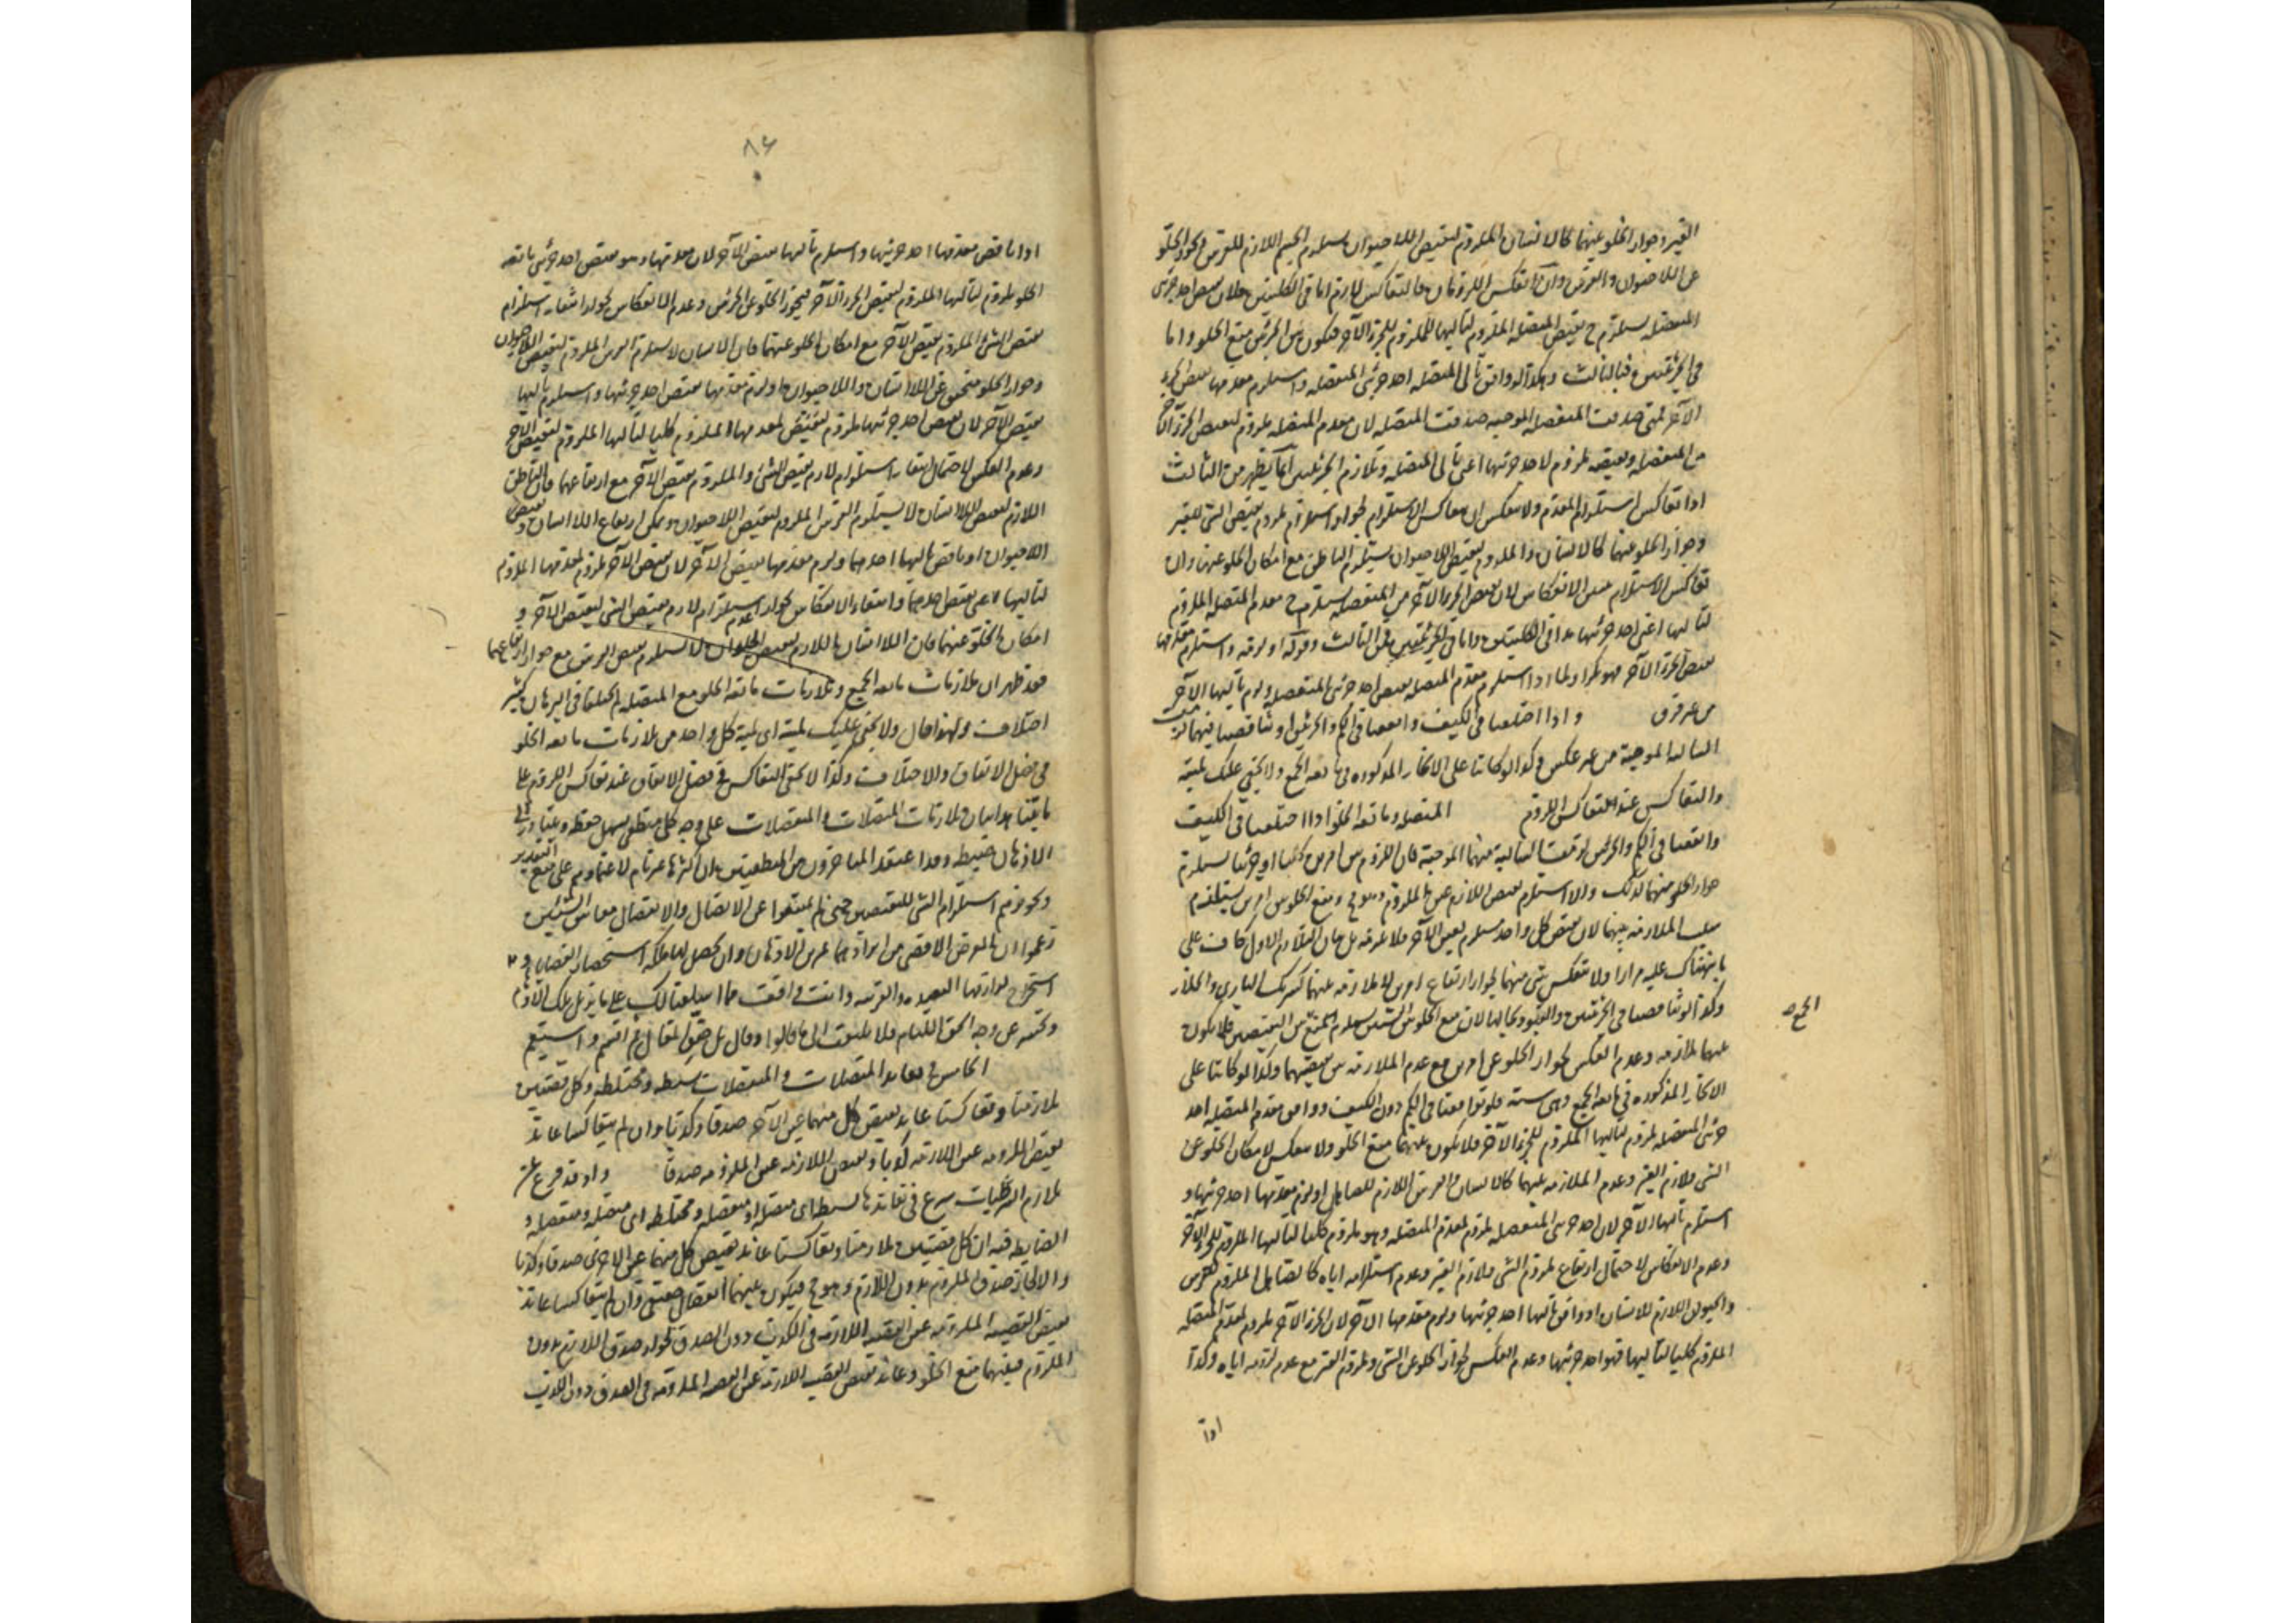 الغير وجواز الخلو عنهما كالانسان الملزوم لنقيض اللاحيوان يستلزم الجسم اللازم للفرس
عن اللاحيوان والفرس وان انعكس اللزومان فالتعاكس لازم اما في الكليتين فلان نقيض احد جزئى
المنفصله يستلزم ح نقيض المتصله الملزوم لتاليها الملزوم للجزء الآخر فيكون بين الجزئين منع الخلو واما
في الجزئيتين فبالثالث وهكذا لو وافق تالى المتصله احد جزئى المنفصله واستلزم مقدمها نقيض الجزء
الآخر فمتى صدقت المنفصله الموجبه صدقت المتصله لان مقدم المتصله ملزوم لنقيض الجزء الآخر
من المنفصله ونقيضه ملزوم لاحد جزئيها اعنى تالى المتصله وتلازم الجزئيتين انما يظهر من الثالث
اذا تعاكس استلزام المقدم ولا ينعكس ان تعاكس الاستلزام لجواز استلزام ملزوم نقيض الشى للغير
وجواز الخلو عنهما كالانسان الملزوم لنقيض اللاحيوان يستلزم الناطق مع امكان الخلو عنهما وان
تعاكس الاستلزام تعين الانعكاس لان نقيض الجزء الآخر من المنفصله يستلزم ح مقدم المتصله الملزوم
لتاليها اعنى احد جزئيها هذا في الكليتين واما في الجزئيتين فمن الثالث وقوله او لزمه واستلزم مقدمها
نقيض الجزء الآخر فهو تكرار لما اذا استلزم مقدم المتصله نقيض احد جزئى المنفصله ولزم تاليها الآخر
من غير فرق واذا اختلفتا في الكيف واتفقتا في الكم والجزئين او تناقضتا فيهما لزمت
السالبه الموجبة من غير عكس وكذا لو كانتا على الانحاء المذكوره في مانعه الجمع ولا يخفى عليك لميته
والتعاكس عند التعاكس اللزوم المتصله ومانعه الخلو اذا اختلفتا في الكيف
واتفقتا في الكم والجزئين لزمت السالبة منهما الموجبة فان اللزوم بين امرين كليا او جزئيا يستلزم
جواز الخلو منهما كذلك والا استلزم نقيض اللازم عين الملزوم وهو مح ومنع الخلو بين امرين يستلزم
سلب الملازمه بينهما لان نقيض كل واحد يستلزم عين الآخر
ما نبهناك عليه مرارا ولا تنعكس شى منهما لجواز ارتفاع امرين لا ملازمه بينهما كشريك البارى والخلاء
وكذا لو تناقضتا في الجزئيين
الجمع صح
بينهما ملازمه وعدم العكس لجواز الخلو عن امرين مع عدم الملازمه بين نقيضيهما وكذا لو كانتا على
الانحاء المذكوره في مانعه الجمع وهى سته فلو توافقتا في الكم دون الكيف ووافق مقدم المتصله احد
جزئى المنفصله ولزم تاليها الملزوم للجزء الآخر فلا يكون بينهما منع الخلو ولا ينعكس لامكان الخلو عن
الشى ولازم الغير وعدم الملازمه بينهما كالانسان والفرس اللازم للصاهل او لزم مقدمها احد جزئيها و
استلزم تاليها الآخر لان احد جزئى المنفصله ملزوم لمقدم المتصله وهو ملزوم كليا لتاليها الملزوم للجزء الآخر
وعدم الانعكاس لاحتمال ارتفاع ملزوم الشى ولازم الغير وعدم استلزامه اياه كالصاهل الملزوم للفرس
والحيوان اللازم للانسان او وافق تاليها احد جزئيها ولزم مقدمها الآخر لان الجزء الآخر ملزوم لمقدم المتصله
الملزوم كليا لتاليها فهو احد جزئيها وعدم العكس لجواز الخلو عن الشى وملزوم الغير مع عدم لزومه اياه وكذا
اذا
٨٤
اذا ناقض مقدمها احد جزئيها واستلزم تاليها نقيض الآخر لان مقدمها وهو نقيض احد جزئى مانعه
الخلو ملزوم لتاليها الملزوم لنقيض الجزء الآخر فيجوز الخلو عن الجزئين وعدم الانعكاس لجواز انتفاء استلزام
نقيض الشى الملزوم نقيض الآخر مع امكان الخلو عنهما فان الانسان لا يستلزم الفرس الملزوم لنقيض اللاحيوان
وجواز الخلو متحقق عن اللاانسان واللاحيوان او لزم مقدمها نقيض احد جزئيها واستلزم تاليها
نقيض الآخر لان نقيض احد جزئيها ملزوم لمقدمها الملزوم كليا لتاليها الملزوم لنقيض الآخر
وعدم العكس لاحتمال انتفاء استلزام لازم نقيض الشى والملزوم نقيض الآخر مع ارتفاعهما فان الناطق
اللازم لنقيض اللاانسان لا يستلزم الفرس الملزوم لنقيض اللاحيوان ويمكن ارتفاع اللاانسان و
اللاحيوان او ناقض تاليها احدهما ولزم مقدمها نقيض الآخر لان نقيض الآخر ملزوم لمقدمها الملزوم
لتاليها اعنى نقيض احدهما وانتفاء الانعكاس لجواز عدم استلزام لازم نقيض الشى لنقيض الآخر و
امكان الخلو عنهما فان اللاانسان اللازم لنقيض الحيوان لا يستلزم نقيض الفرس مع جواز ارتفاعهما
فقد ظهر ان ملازمات مانعه الجمع وملازمات مانعه الخلو مع المتصله لم يختلفا في البرهان كثير
اختلاف ولهذا قال ولا يخفى عليك لميته اى لمية كل واحد من ملازمات مانعه الخلو
في فصل الاتفاق والاختلاف وكذا لا يخفى التعاكس في فصل الاتفاق عند تعاكس اللزوم على
ما بيناه هذا بيان ملازمات المتصلات والمنفصلات على وجه كلى منطقى يسهل حفظه ويتبادر الى
الاذهان ضبطه وقد اعتقد المتاخرون من المنطقيين ان اكثرها غير تام لاعتمادهم على جميع التقدير
وتجويزهم استلزام الشى للنقيضين حتى لم يمتنعوا عن الاتصال والانفصال معا بين الشيئين
زعموا ان الغرض الاقصى من ايرادهما تمرين الاذهان وان يحصل لها ملكه استحضار القضايا و
استخراج لوازمها البعيده والقريبه وانت فى افقت مما اسلفنا لك على ما يزيل تلك الاوهام
وتكشف عن وجه الحق اللثام فلا تلتفت الى ما قالوا وقال بل حقق المقال ثم اقتم واستقم
الخامس في تعاند المتصلات والمنفصلات بسيطه ومختلطه وكل قضيتين
تلازمتا وتعاكستا عاند نقيض كل منهما عين الآخر صدقا وكذبا وان لم يتعاكسا عاند
نقيض الملزومه عين اللازمه كذبا ونقيض اللازمه عين الملزومه صدقا واذ قد فرغ عن
تلازم الشرطيات شرع في تعاندها بسيطه اى متصله او منفصله ومختلطه اى متصله ومنفصله و
الضابطه فيه ان كل قضيتين تلازمتا وتعاكستا عاند نقيض كل منهما عين الاخرى صدقا وكذبا
والا لجاز صدق الملزوم بدون اللازم وهو مح فيكون بينهما انفصال حقيقى وان لم يتعاكسا عاند
نقيض القضيه الملزومه عين القضيه اللازمه في الكذب دون الصدق لجواز صدق اللازم بدون
الملزوم فبينهما منع الخلو وعاند نقيض القضيه اللازمه عين القضيه الملزومه في الصدق دون الكذب